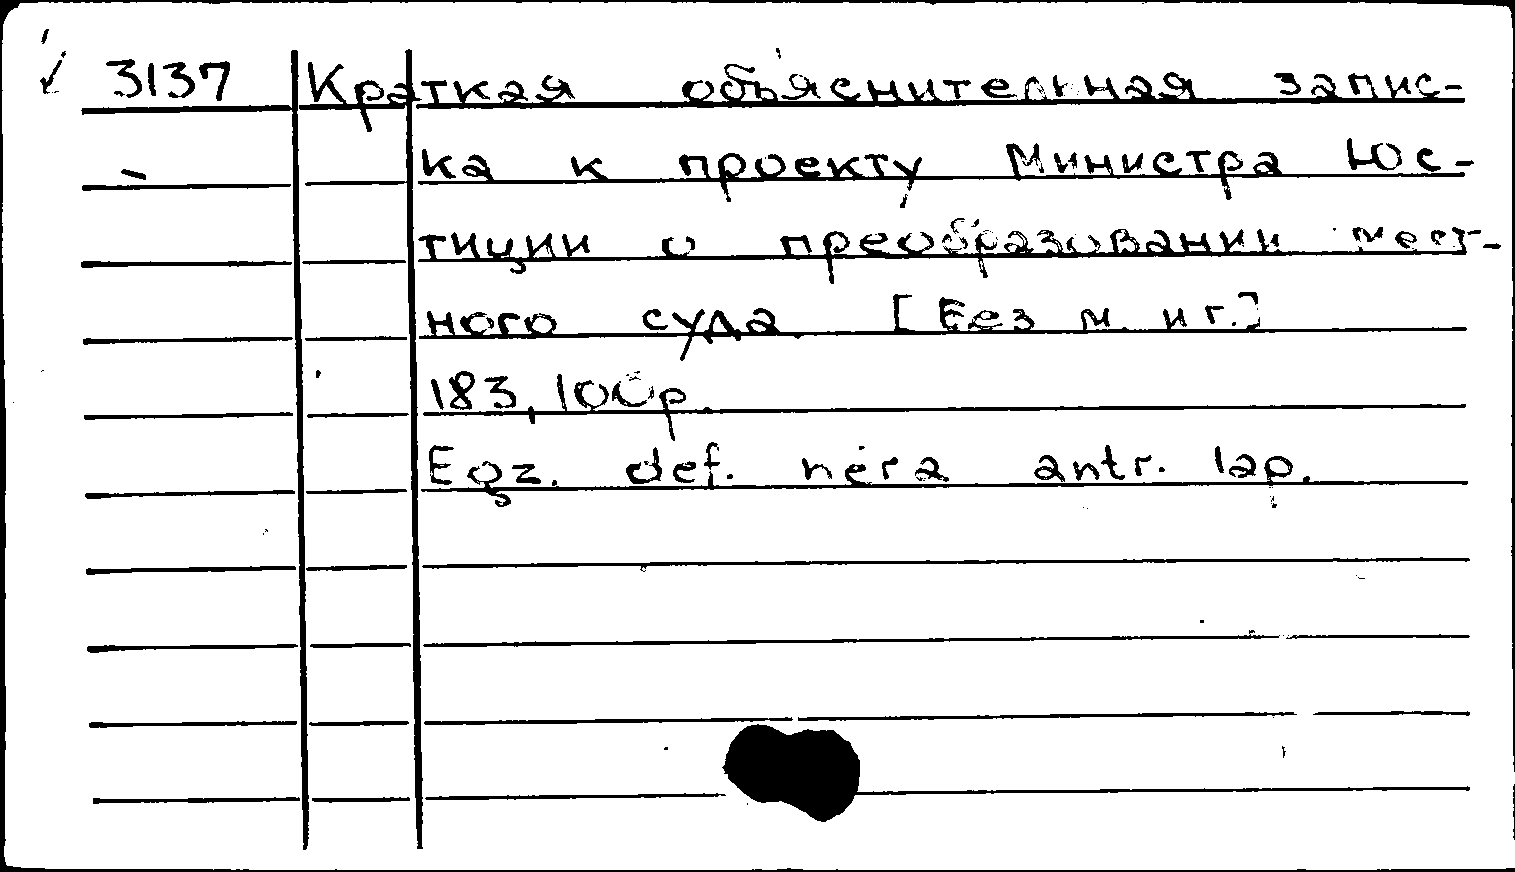 3137 Краткая объяснительная запис-
ка к проекту Министра Юс-
тиции о преобразовании мест-
ного суда. [Без м. и г.]
183, 100 р.
Egz. def. nėra antr. lap.